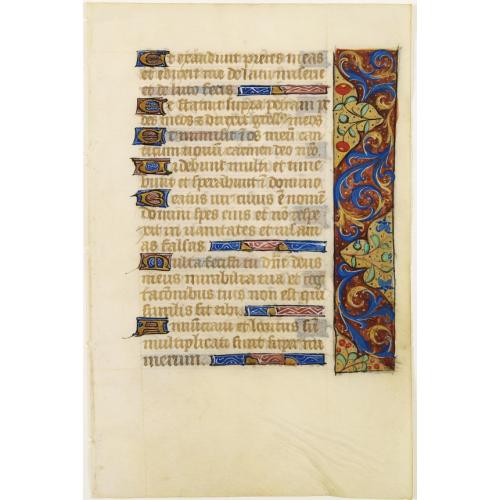 Et exaudivit preces meas
et eduxit me de lacu miserie
et de luto fecis
Et statuit supra petram pe
des meos et direxit gressus meos
Et inmisit in os meum can
ticum novum carmen deo nro
Videbunt multi et time
bunt et sperabunt in domino
Beatus vir cuius est nomen
domini spes eius et non respe
xit in vanitates et insani
as falsas
Multa fecisti tu dne deus
meus mirabilia tua et cogi
tacionibus tuis non est qui
similis sit tibi
Annunciavi et locutus sum
multiplicati sunt super nu
merum